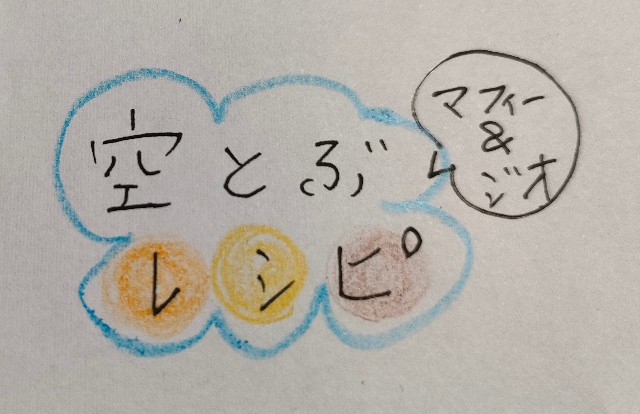 空とぶ
レシピ
マフィー
&
ジオ